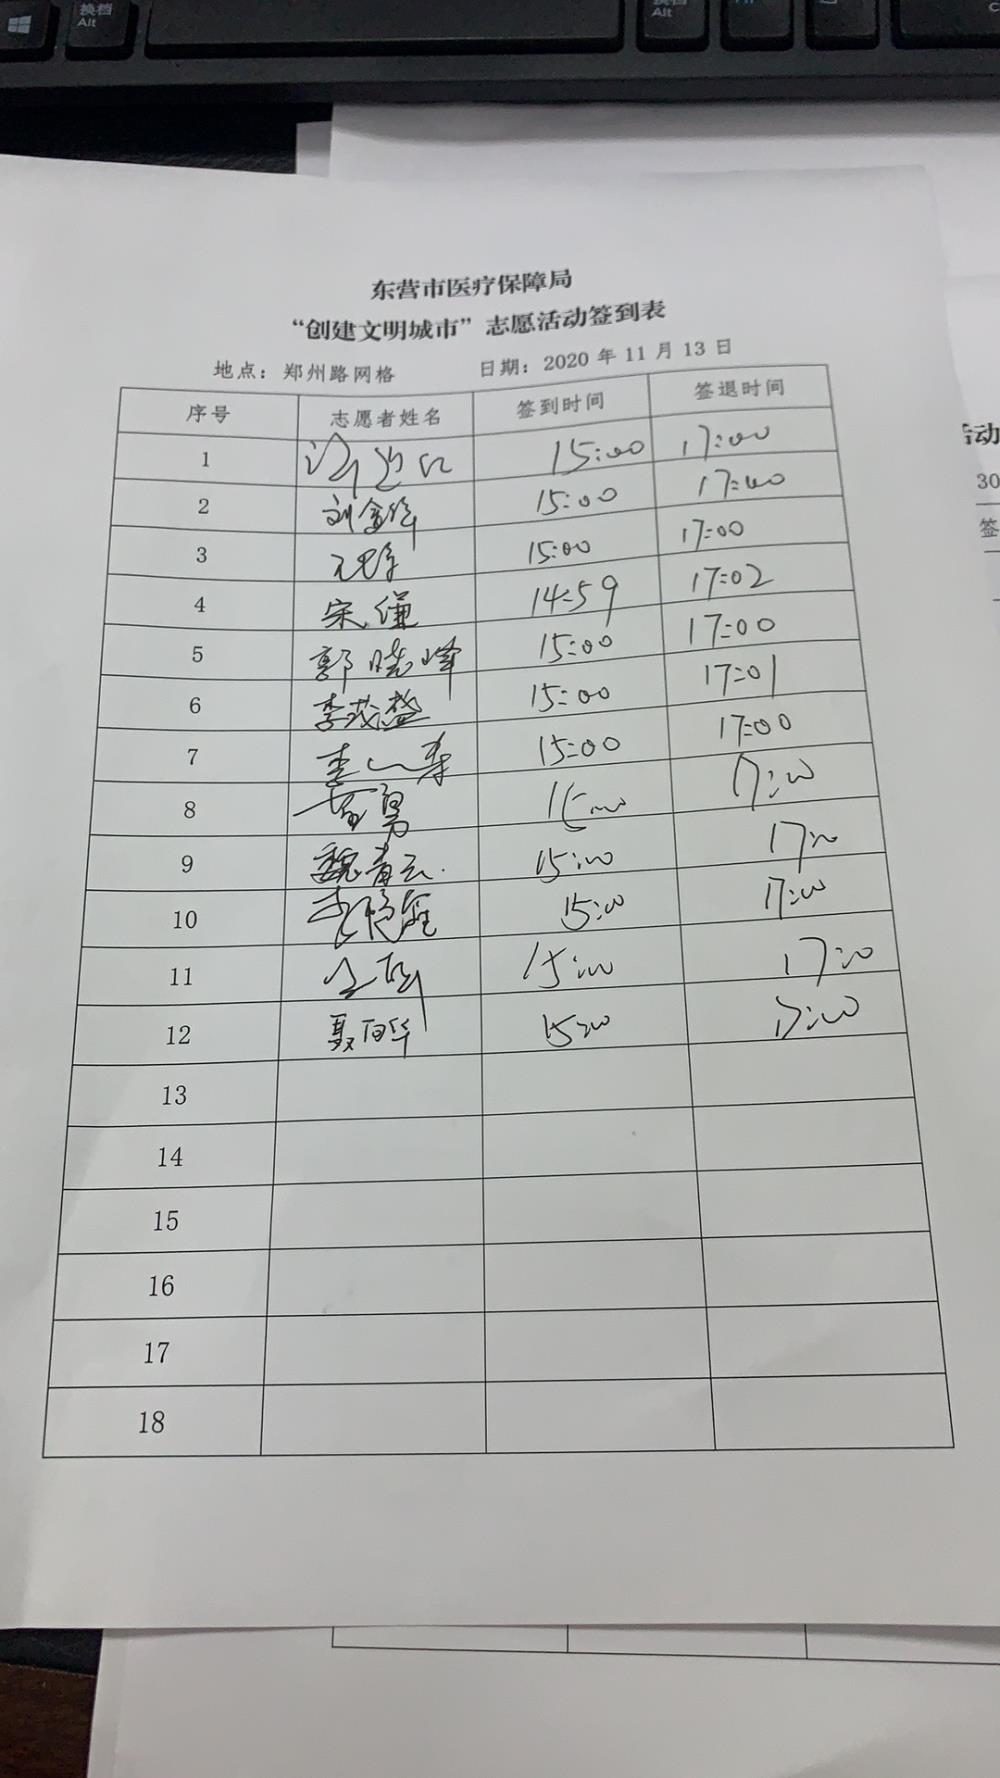 换档
Alt
Alt
东营市医疗保障局
“创建文明城市”志愿活动签到表
地点：郑州路网格 日期：2020 年 11 月 13 日
序号 志愿者姓名 签到时间 签退时间
1 15:00 17:00
2 刘金华 15:00 17:00
3 15:00 17:00
4 宋谦 14:59 17:02
5 郭晓峰 15:00 17:00
6 李茂盛 15:00 17:01
7 15:00 17:00
8 15:00 17:00
9 魏青云 15:00 17:00
10 15:00 17:00
11 15:00 17:00
12 聂白华 15:00 17:00
13
14
15
16
17
18
活动
30
签